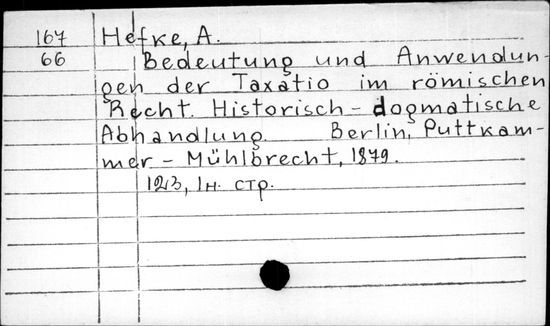 167 Hefke, A.
66 Bedeutung und Anwendun-
gen der Taxatio im römischen
Recht. Historisch-dogmatische
Abhandlung. Berlin, Puttkam-
mer - Mühlbrecht, 1879.
123, 1н. стр.